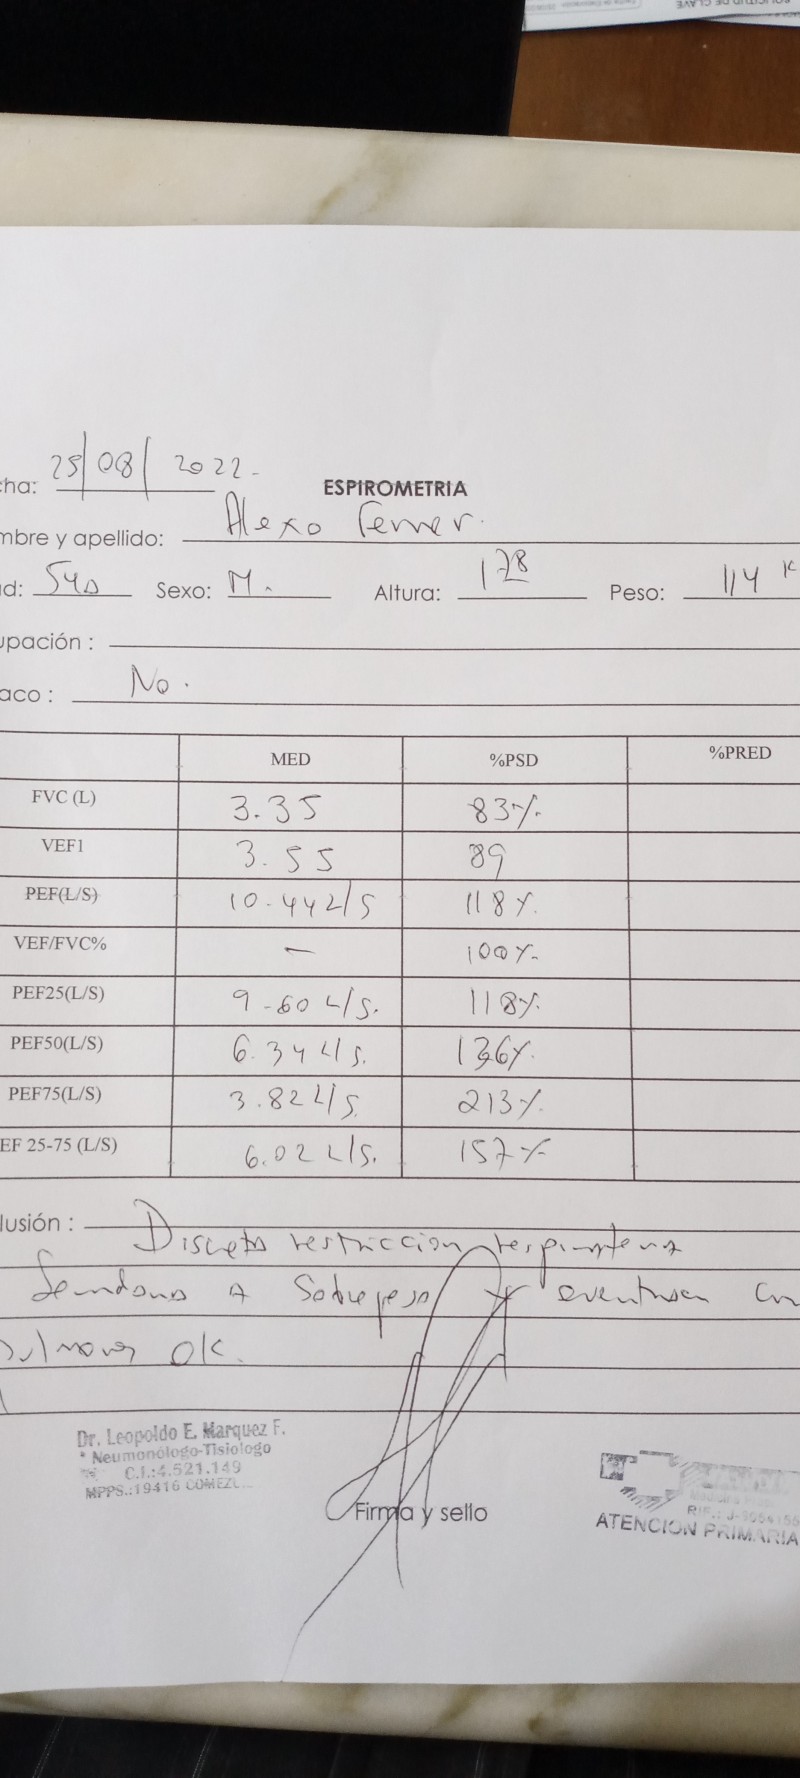 cha: 25/08/ 2022-
ESPIROMETRIA
mbre y apellido: Alexo Ferrer.
d: 54a Sexo: M. Altura: 178 Peso: 114 K
upación :
aco : No.
MED %PSD %PRED
FVC (L) 3.35 83%.
VEF1 3.55 89
PEF(L/S) 10.44L/S 118%.
VEF/FVC% — 100%-
PEF25(L/S) 9.60 L/S. 118%.
PEF50(L/S) 6.34 L/S. 136%.
PEF75(L/S) 3.82 L/S. 213%.
EF 25-75 (L/S) 6.02 L/S. 157%
lusión : Discreta restriccion respiratoria
A Sobrepeso y
OK.
Dr. Leopoldo E. Marquez F.
* Neumonólogo-Tisiologo
C.I.:4.521.149
MPPS.:19416 COMEZ
Firma y sello
ATENCION PRIMARIA